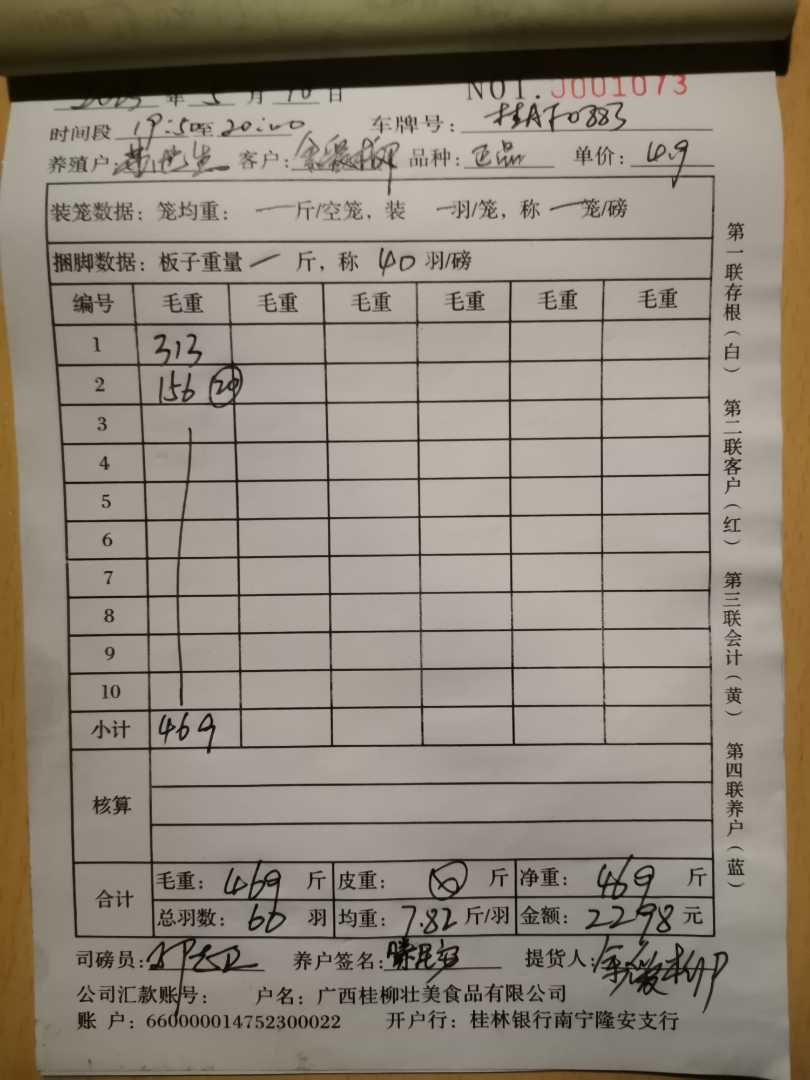 2023年5月10日 NO1.J001073
时间段 19:50至20:00 车牌号:桂AF0883
养殖户: 客户: 品种:正品 单价:4.9
装笼数据:笼均重:一斤/空笼,装一羽/笼,称一笼/磅
捆脚数据:板子重量一斤,称40羽/磅
编号 毛重 毛重 毛重 毛重 毛重 毛重
1 313
2 156 20
3
4
5
6
7
8
9
10
小计 469
核算
合计 毛重:469斤 皮重: 斤 净重:469斤
总羽数:60羽 均重:7.82斤/羽 金额:2298元
司磅员: 养户签名: 提货人:
公司汇款账号: 户名:广西桂柳壮美食品有限公司
账 户:660000014752300022 开户行:桂林银行南宁隆安支行
第一联存根(白) 第二联客户(红) 第三联会计(黄) 第四联养户(蓝)